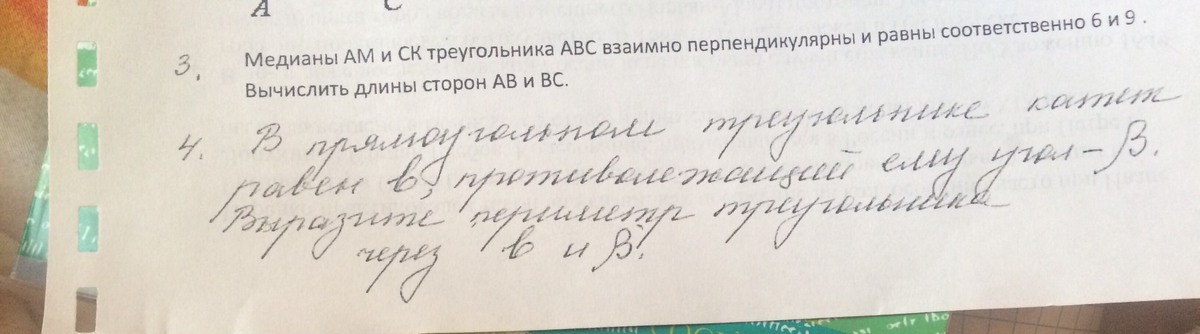 А С
3. Медианы АМ и СК треугольника АВС взаимно перпендикулярны и равны соответственно 6 и 9 .
Вычислить длины сторон АВ и ВС.
4. В прямоугольном треугольнике катет
равен в, противолежащий ему угол - β.
Выразите периметр треугольника
через в и β.